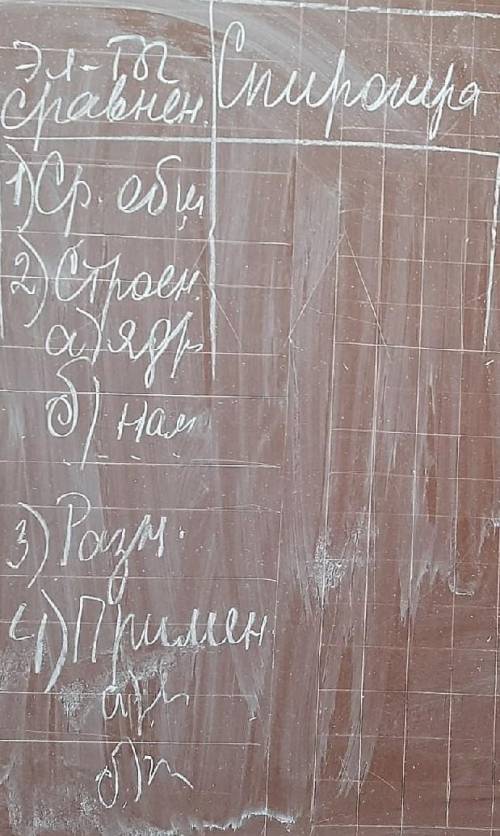 Эл-ты
сравнен.
Спирогира
1) Ср. обит
2) Строен.
а) ядр
б) нал
3) Разм.
4) Примен
а)
б) п